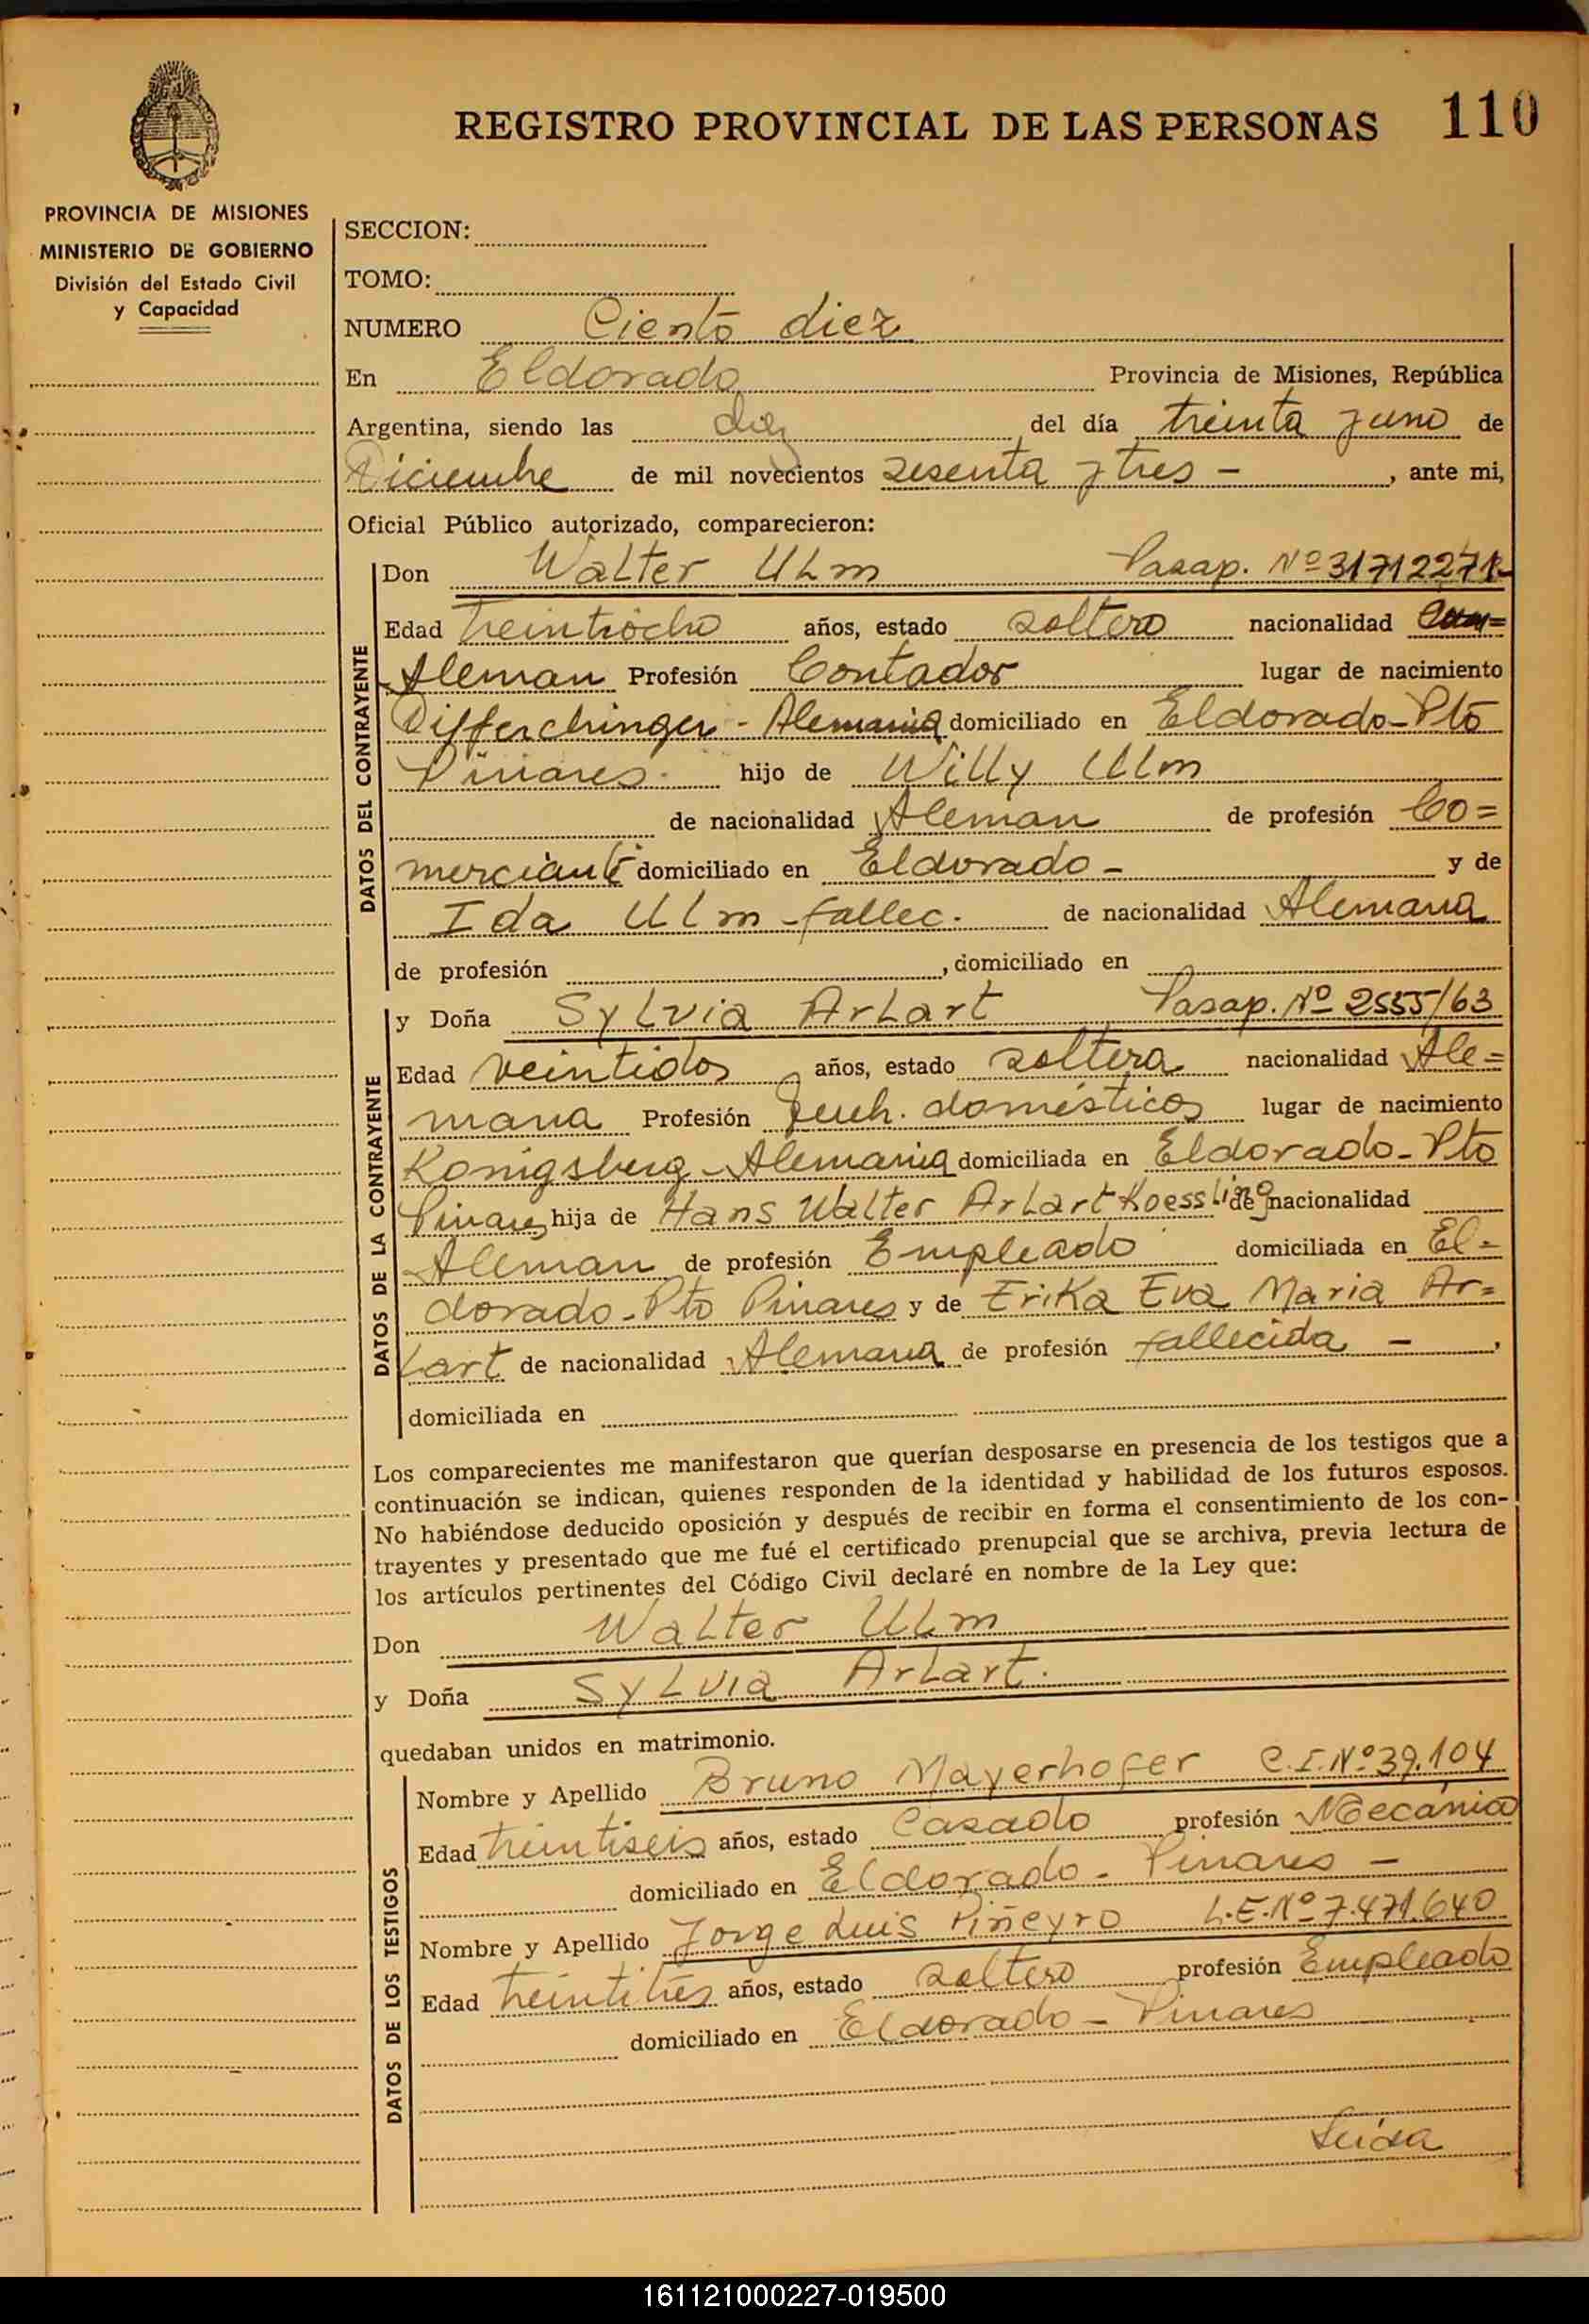 REGISTRO PROVINCIAL DE LAS PERSONAS 110
PROVINCIA DE MISIONES
MINISTERIO DE GOBIERNO
División del Estado Civil
y Capacidad
SECCION:
TOMO:
NUMERO Ciento diez
En Eldorado Provincia de Misiones, República
Argentina, siendo las diez del día treinta y uno de
Diciembre de mil novecientos sesenta y tres - , ante mi,
Oficial Público autorizado, comparecieron:
DATOS DEL CONTRAYENTE
Don Walter Ulm Pasap. Nº 31712271-
Edad treintiocho años, estado soltero nacionalidad
Aleman Profesión Contador lugar de nacimiento
- Alemania domiciliado en Eldorado - Pto
Pinares. hijo de Willy Ulm
de nacionalidad Aleman de profesión Co=
merciante domiciliado en Eldorado - y de
Ida Ulm - fallec. de nacionalidad Alemana
de profesión , domiciliado en
DATOS DE LA CONTRAYENTE
y Doña Sylvia Arlart Pasap. Nº 2555/63
Edad veintidos años, estado soltera nacionalidad Ale=
mana Profesión domésticos lugar de nacimiento
Konigsberg - Alemania domiciliada en Eldorado - Pto
Pinares hija de Hans Walter Arlart Koessling de nacionalidad
Aleman de profesión Empleado domiciliada en El=
dorado - Pto Pinares y de Erika Eva Maria Ar=
lart de nacionalidad Alemana de profesión fallecida - ,
domiciliada en
Los comparecientes me manifestaron que querían desposarse en presencia de los testigos que a
continuación se indican, quienes responden de la identidad y habilidad de los futuros esposos.
No habiéndose deducido oposición y después de recibir en forma el consentimiento de los con-
trayentes y presentado que me fué el certificado prenupcial que se archiva, previa lectura de
los artículos pertinentes del Código Civil declaré en nombre de la Ley que:
Don Walter Ulm
y Doña Sylvia Arlart.
quedaban unidos en matrimonio.
DATOS DE LOS TESTIGOS
Nombre y Apellido Bruno Mayerhofer C.I. Nº 39.104
Edad treintiseis años, estado Casado profesión Mecánico
domiciliado en Eldorado - Pinares -
Nombre y Apellido Jorge Luis Piñeyro L.E. Nº 7.471.640
Edad treintitrés años, estado soltero profesión Empleado
domiciliado en Eldorado - Pinares
Leída
161121000227-019500